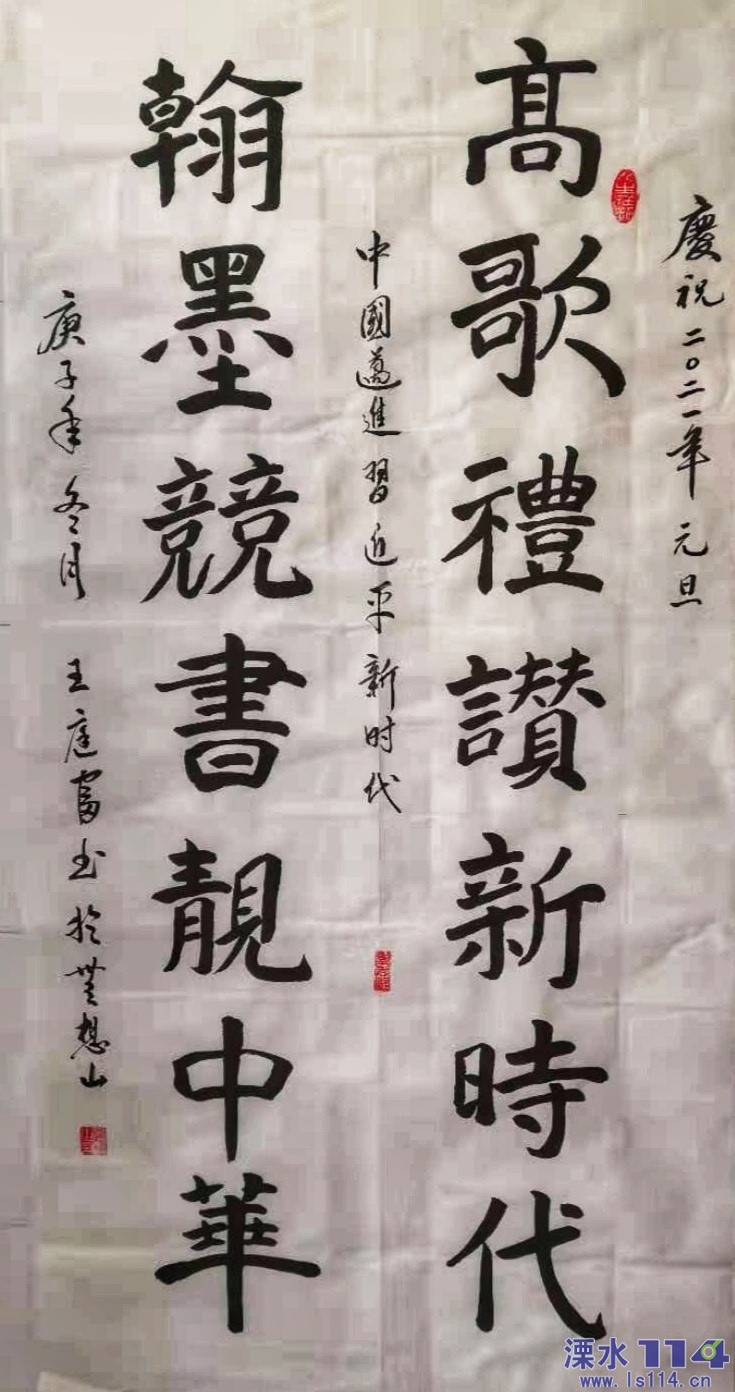 慶祝二〇二一年元旦
高歌禮讃新時代
中國邁進習近平新时代
翰墨競書靚中華
庚子年冬月 王庭富书於無想山
溧水114
www.ls114.cn